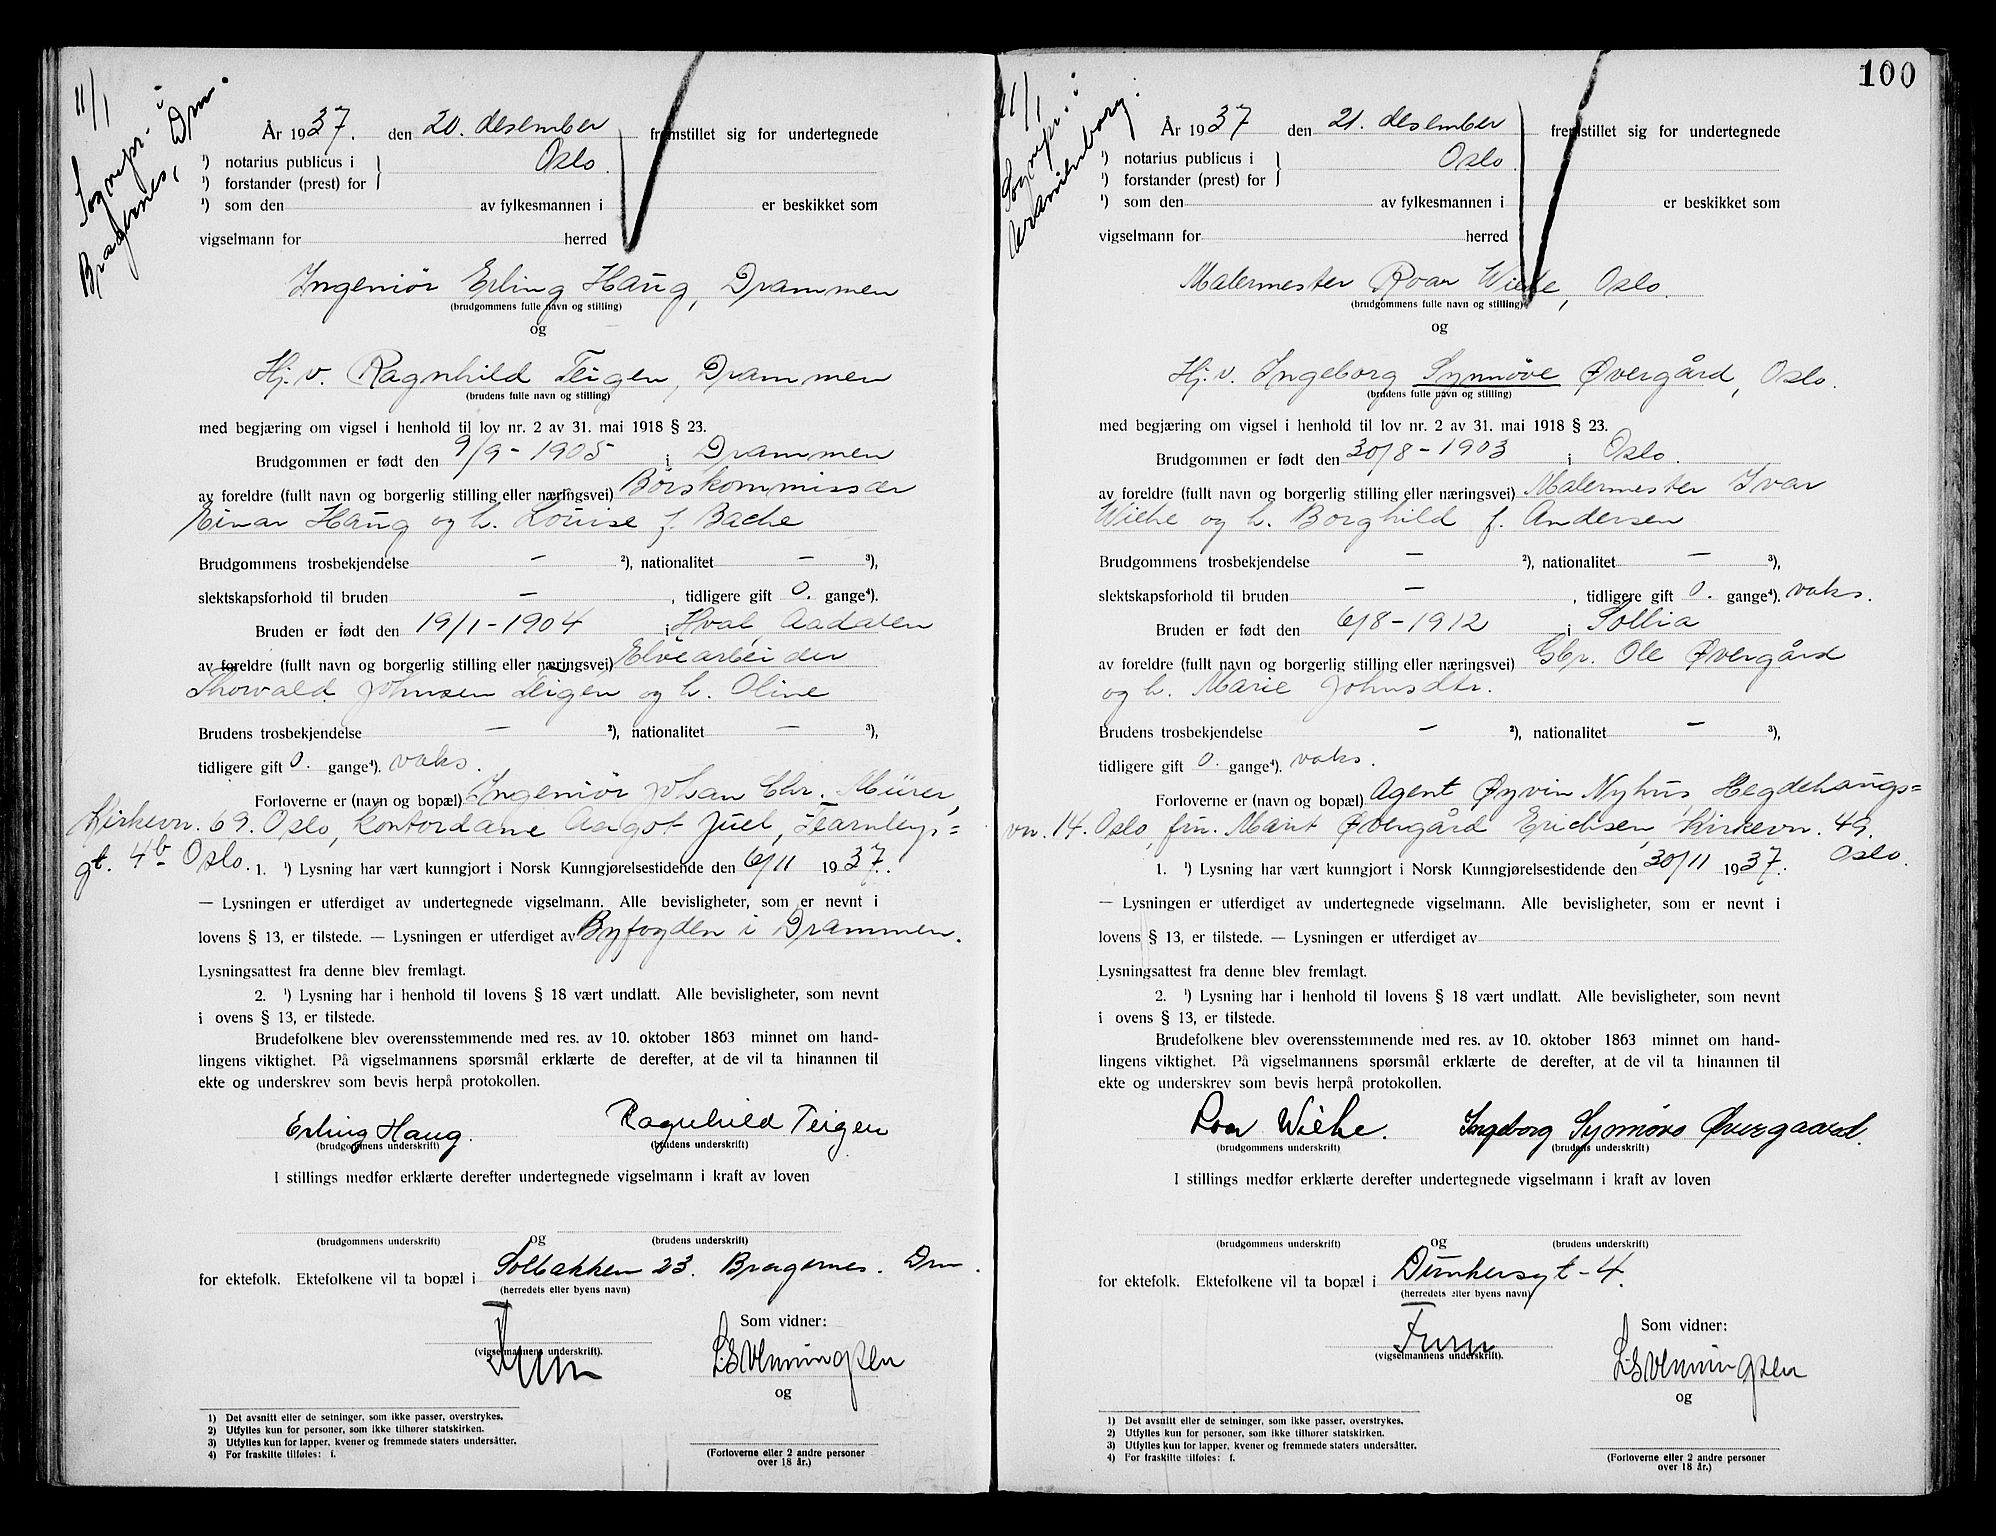 11/1
Sognepr. i
Bragernes, Drm.
År 1937. den 20. desember fremstillet sig for undertegnede
¹) notarius publicus i Oslo.
¹) forstander (prest) for
¹) som den av fylkesmannen i er beskikket som
vigselmann for herred
Ingeniør Erling Haug, Drammen
(brudgommens fulle navn og stilling)
og
Hj. v. Ragnhild Teigen, Drammen
(brudens fulle navn og stilling)
med begjæring om vigsel i henhold til lov nr. 2 av 31. mai 1918 § 23.
Brudgommen er født den 9/9 - 1905 i Drammen
av foreldre (fullt navn og borgerlig stilling eller næringsvei) Børskommissær
Einar Haug og h. Louise f. Bache
Brudgommens trosbekjendelse — ²), nationalitet — ³),
slektskapsforhold til bruden — , tidligere gift 0. gange⁴).
Bruden er født den 19/1 - 1904 i Hval, Aadalen
av foreldre (fullt navn og borgerlig stilling eller næringsvei) Elvearbeider
Thorvald Johnsen Teigen og h. Oline
Brudens trosbekjendelse — ²), nationalitet — ³),
tidligere gift 0. gange⁴). vaks.
Forloverne er (navn og bopæl) Ingeniør Johan Chr. Mürer,
Kirkevn. 69. Oslo, kontordame Aagot Juel, Fearnleys=
gt. 4b Oslo. 1. ¹) Lysning har vært kunngjort i Norsk Kunngjørelsestidende den 6/11 1937.
— Lysningen er utferdiget av undertegnede vigselmann. Alle bevisligheter, som er nevnt i
lovens § 13, er tilstede. — Lysningen er utferdiget av Byfogden i Drammen.
Lysningsattest fra denne blev fremlagt.
2. ¹) Lysning har i henhold til lovens § 18 vært undlatt. Alle bevisligheter, som nevnt
i ovens § 13, er tilstede.
Brudefolkene blev overensstemmende med res. av 10. oktober 1863 minnet om hand-
lingens viktighet. På vigselmannens spørsmål erklærte de derefter, at de vil ta hinannen til
ekte og underskrev som bevis herpå protokollen.
Erling Haug. Ragnhild Teigen
(brudgommens underskrift) (brudens underskrift)
I stillings medfør erklærte derefter undertegnede vigselmann i kraft av loven
og
(brudgommens underskrift) (brudens underskrift)
for ektefolk. Ektefolkene vil ta bopæl i Solbakken 23. Bragernes. Drm.
(herredets eller byens navn)
Som vidner:
(vigselmannens underskrift).
og
1) Det avsnitt eller de setninger, som ikke passer, overstrykes.
2) Utfylles kun for personer, som ikke tilhører statskirken.
3) Utfylles kun for lapper, kvener og fremmede staters undersåtter.
4) For fraskilte tilføles: f.
(Forloverne eller 2 andre personer
over 18 år.)
100
11/1
Sognepr. i
Uranienborg.
År 1937 den 21. desember fremstillet sig for undertegnede
¹) notarius publicus i Oslo
¹) forstander (prest) for
¹) som den av fylkesmannen i er beskikket som
vigselmann for herred
Malermester Roar Wiehe, Oslo.
(brudgommens fulle navn og stilling)
og
Hj. v. Ingeborg Synnøve Øvergård, Oslo.
(brudens fulle navn og stilling)
med begjæring om vigsel i henhold til lov nr. 2 av 31. mai 1918 § 23.
Brudgommen er født den 30/8 - 1903 i Oslo.
av foreldre (fullt navn og borgerlig stilling eller næringsvei) Malermester Ivar
Wiehe og h. Borghild f. Andersen
Brudgommens trosbekjendelse — ²), nationalitet — ³),
slektskapsforhold til bruden — , tidligere gift 0. gange⁴). vaks.
Bruden er født den 6/8 - 1912 i Sollia
av foreldre (fullt navn og borgerlig stilling eller næringsvei) Gbr. Ole Øvergård
og h. Marie Johnsdtr.
Brudens trosbekjendelse — ²), nationalitet — ³),
tidligere gift 0. gange⁴). vaks.
Forloverne er (navn og bopæl) Agent Øyvin Nyhus, Hegdehaugs=
vn. 14. Oslo, fru Marit Øvergård Erichsen, Kirkevn. 49.
Oslo.
1. ¹) Lysning har vært kunngjort i Norsk Kunngjørelsestidende den 30/11 1937.
— Lysningen er utferdiget av undertegnede vigselmann. Alle bevisligheter, som er nevnt i
lovens § 13, er tilstede. — Lysningen er utferdiget av
Lysningsattest fra denne blev fremlagt.
2. ¹) Lysning har i henhold til lovens § 18 vært undlatt. Alle bevisligheter, som nevnt
i ovens § 13, er tilstede.
Brudefolkene blev overensstemmende med res. av 10. oktober 1863 minnet om hand-
lingens viktighet. På vigselmannens spørsmål erklærte de derefter, at de vil ta hinannen til
ekte og underskrev som bevis herpå protokollen.
Roar Wiehe. Ingeborg Synnøve Øvergaard.
(brudgommens underskrift) (brudens underskrift)
I stillings medfør erklærte derefter undertegnede vigselmann i kraft av loven
og
(brudgommens underskrift) (brudens underskrift)
for ektefolk. Ektefolkene vil ta bopæl i Dunkersgt - 4.
(herredets eller byens navn)
Som vidner:
(vigselmannens underskrift).
og
1) Det avsnitt eller de setninger, som ikke passer, overstrykes.
2) Utfylles kun for personer, som ikke tilhører statskirken.
3) Utfylles kun for lapper, kvener og fremmede staters undersåtter.
4) For fraskilte tilføles: f.
(Forloverne eller 2 andre personer
over 18 år.)